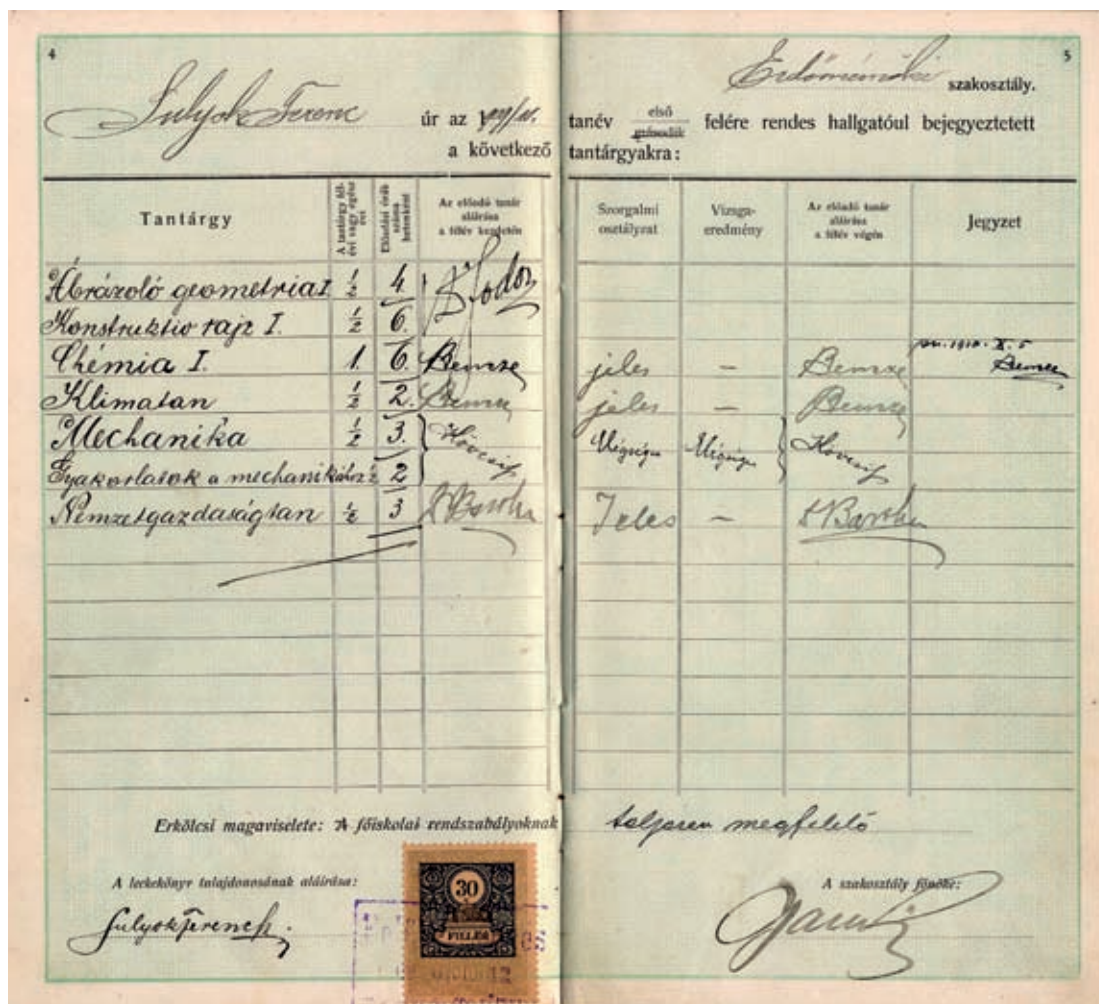 4
5
Sulyok Ferenc úr az tanév első második felére rendes hallgatóul bejegyeztetett
Erdőmérnöki szakosztály.
a következő tantárgyakra:
Tantárgy
A tantárgy fél-
évi vagy egész
évi
Előadási órák
száma
hetenként
Az előadó tanár
aláírása
a félév kezdetén
Szorgalmi
osztályzat
Vizsga-
eredmény
Az előadó tanár
aláírása
a félév végén
Jegyzet
Ábrázoló geometria I. 1/2 4. Fodor
Konstruktiv rajz I. 1/2 6.
Chémia I. 1. 6. Bencze jeles – Bencze 1910. X. 5 Bencze
Klimatan 1/2 2. Bencze jeles – Bencze
Mechanika 1/2 3. Kövesi Kövesi
Gyakorlatok a mechanikához 1/2 2
Nemzetgazdaságtan 1/2 3 Jeles –
Erkölcsi magaviselete: A főiskolai rendszabályoknak teljesen megfelelő
A leckekönyv tulajdonosának aláírása:
A szakosztály főnöke:
Sulyok Ferenc
30
FILLÉR